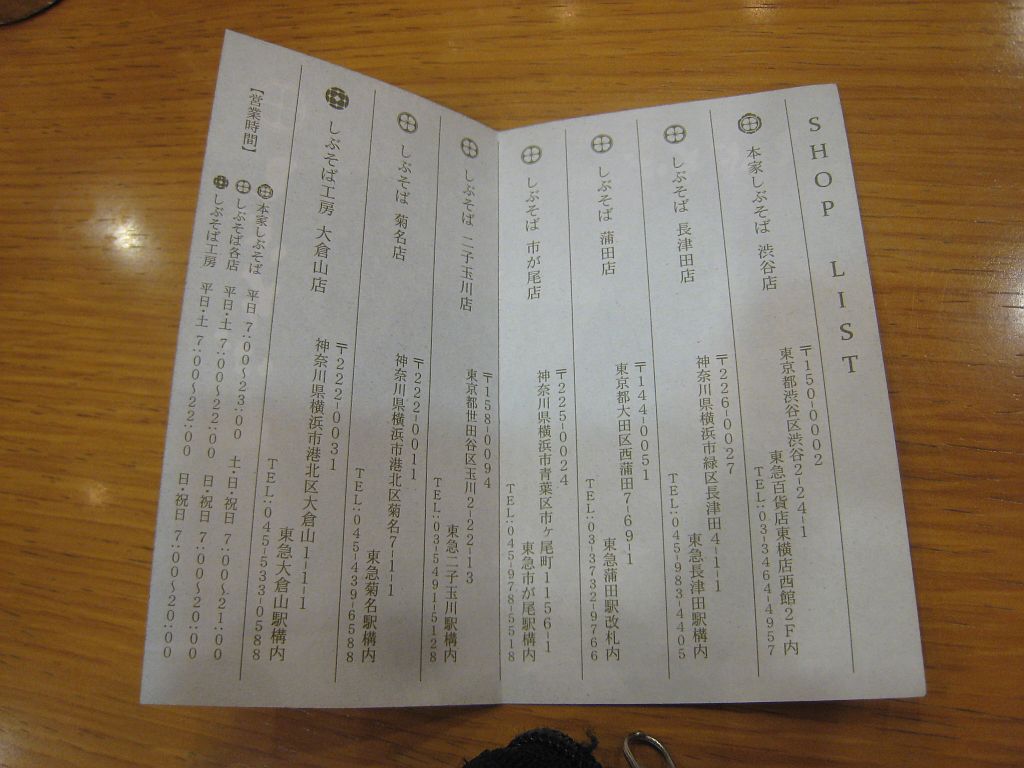 SHOP LIST
本家しぶそば 渋谷店
〒150-0002
東京都渋谷区渋谷2-24-1
東急百貨店東横店西館2F内
TEL:03-3464-4957
しぶそば 長津田店
〒226-0027
神奈川県横浜市緑区長津田4-1-1
東急長津田駅構内
TEL:045-983-4405
しぶそば 蒲田店
〒144-0051
東京都大田区西蒲田7-69-1
東急蒲田駅改札内
TEL:03-3732-9766
しぶそば 市が尾店
〒225-0024
神奈川県横浜市青葉区市ヶ尾町1156-1
東急市が尾駅構内
TEL:045-978-5518
しぶそば 二子玉川店
〒158-0094
東京都世田谷区玉川2-22-13
東急二子玉川駅構内
TEL:03-5491-5128
しぶそば 菊名店
〒222-0011
神奈川県横浜市港北区菊名7-1-1
東急菊名駅構内
TEL:045-439-6588
しぶそば工房 大倉山店
〒222-0031
神奈川県横浜市港北区大倉山1-1-1
東急大倉山駅構内
TEL:045-533-0588
【営業時間】
本家しぶそば 平日 7:00~23:00 土・日・祝日 7:00~21:00
しぶそば各店 平日・土 7:00~22:00 日・祝日 7:00~20:00
しぶそば工房 平日・土 7:00~22:00 日・祝日 7:00~20:00